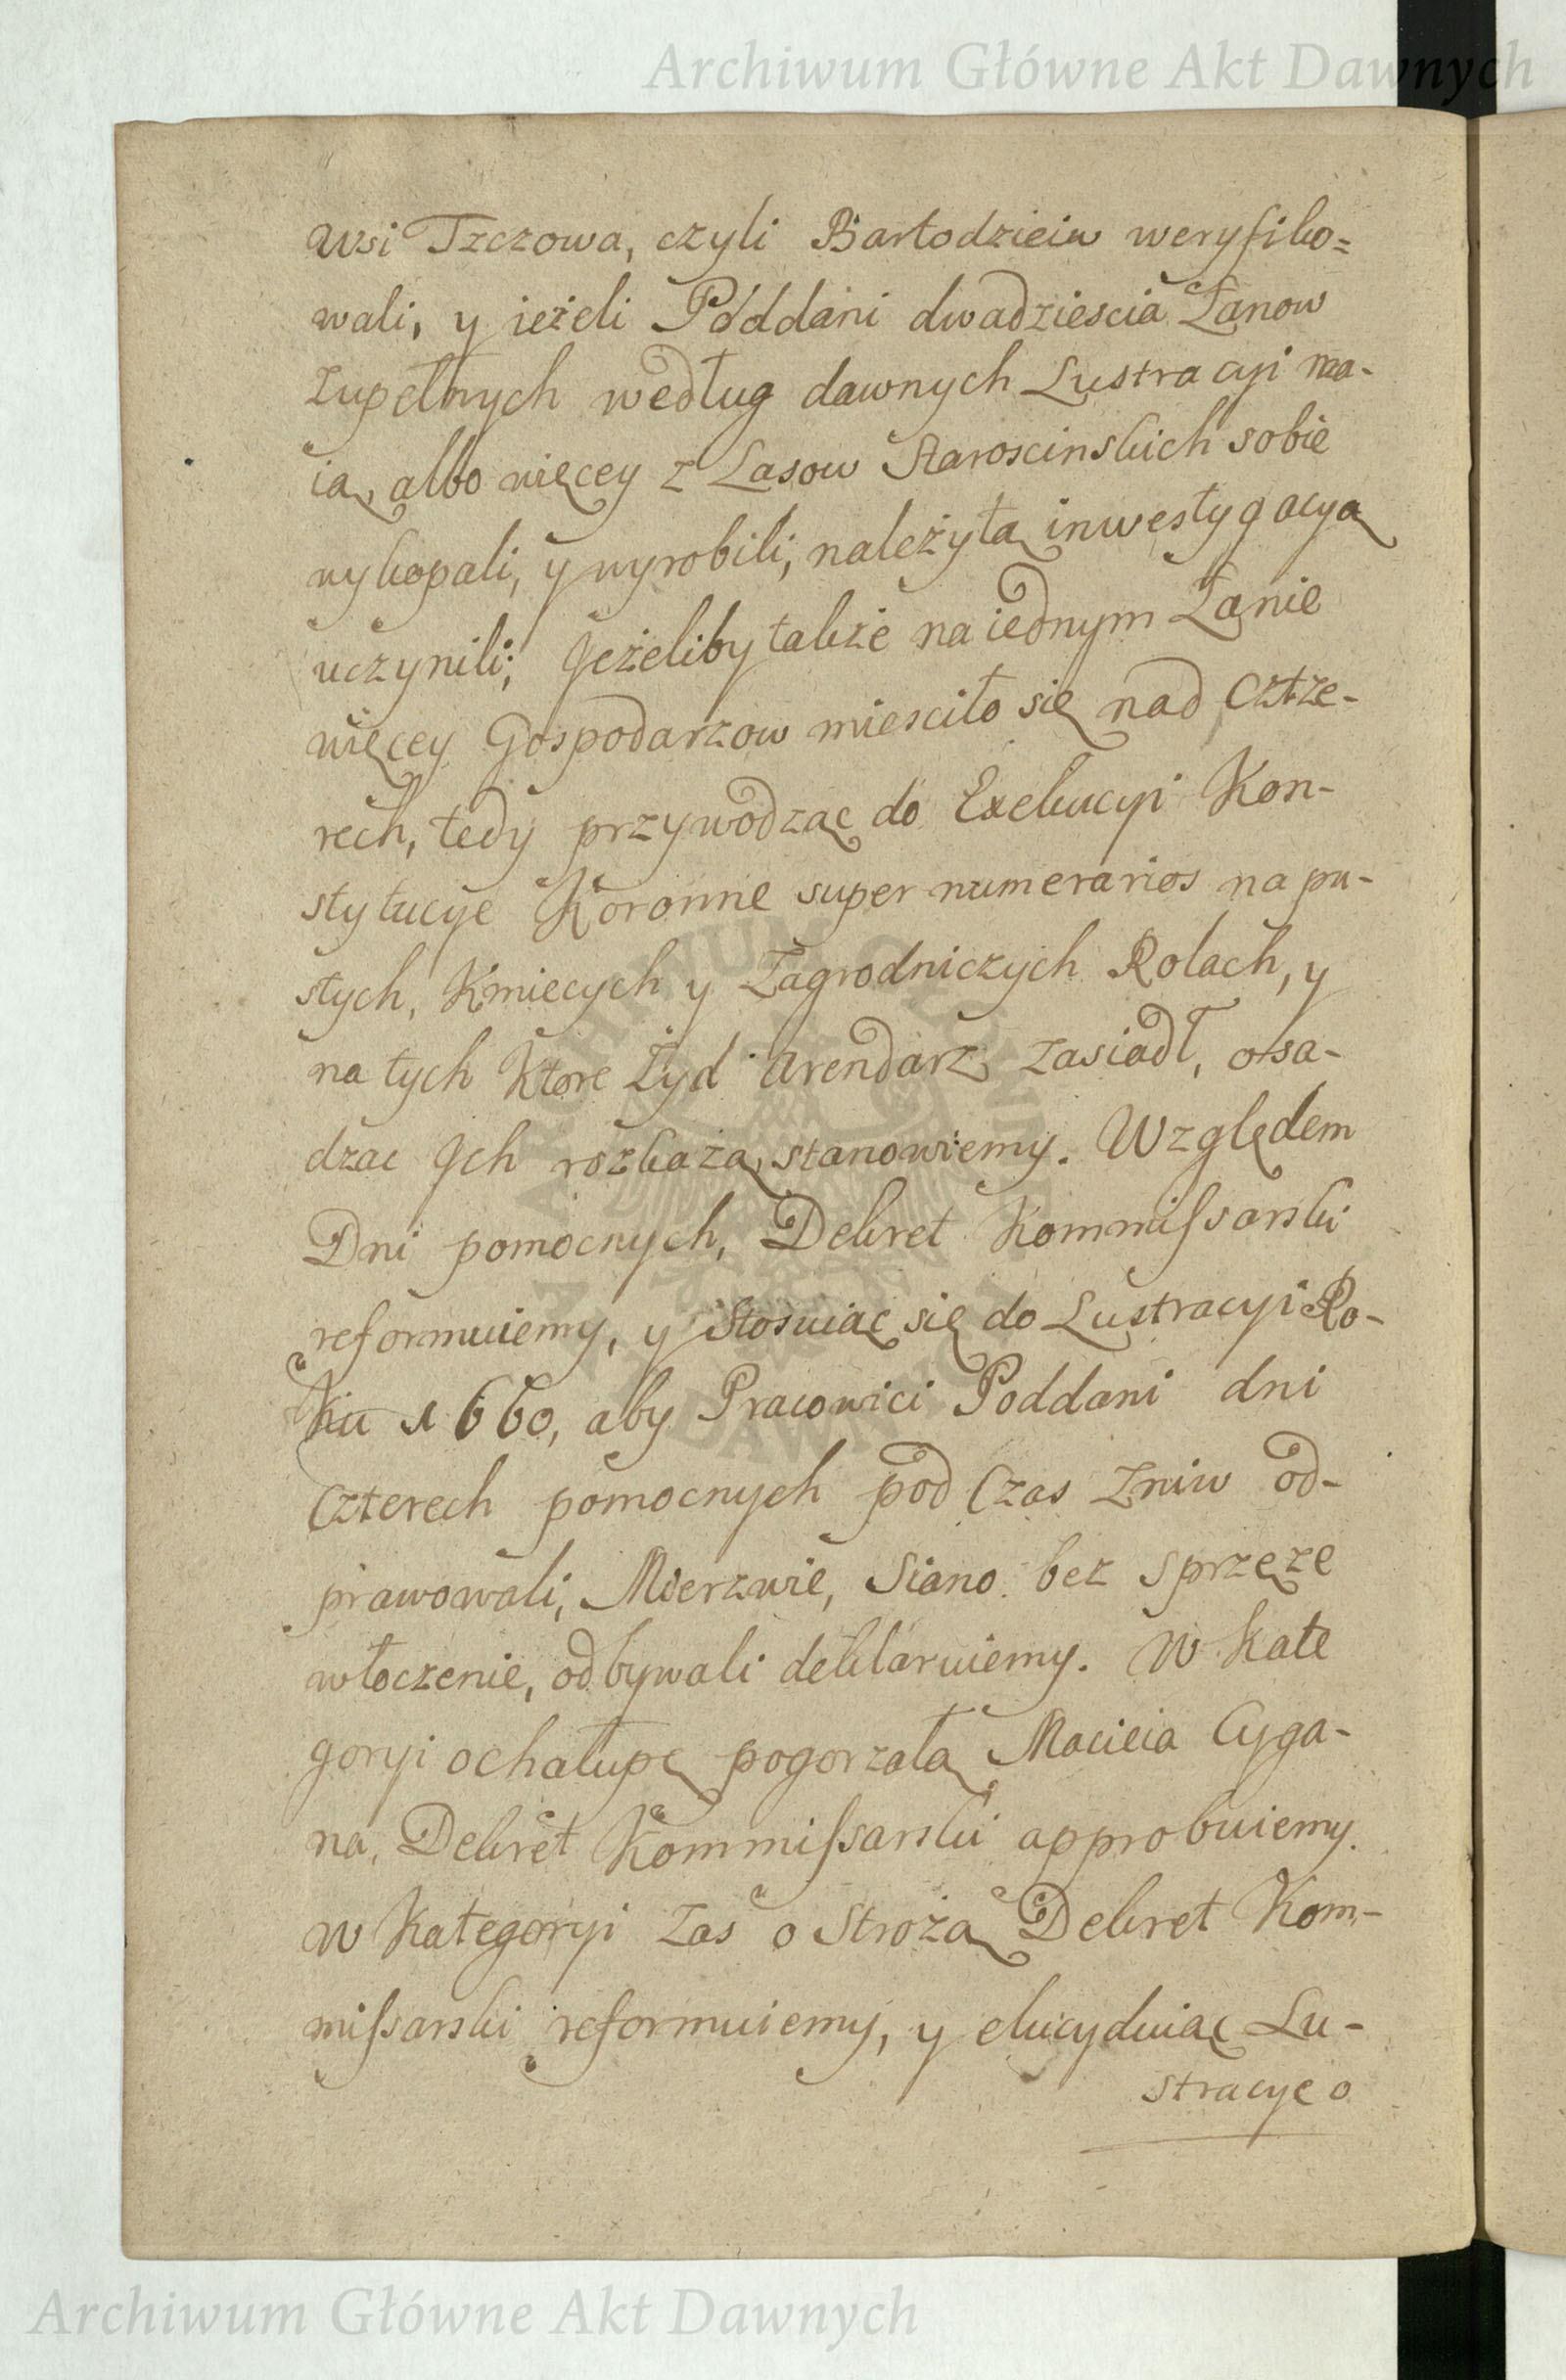 Archiwum Główne Akt Dawnych
Wsi Tzczowa, czyli Bartodzieiw weryfiko=
wali, y ieżeli Poddani dwadziescia Łanow
zupełnych według dawnych Lustracyi ma-
ią, albo więcey z Lasow Staroscinskich sobie
wykopali, y wyrobili, należytą inwestygacyą
uczynili; Jeżeliby także na iednym Łanie
więcey Gospodarzow miesciło się nad Cztze-
rech, tedy przywodząc do Exekucyi Kon-
stytucye Koronne super numerarios na pu-
stych, Kmiecych y Zagrodniczych Rolach, y
na tych Ktore Żyd Arendarz zasiadł, osa-
dzac Jch rozkażą, stanowiemy. Względem
Dni pomocnych, Dekret Kommissarski
reformuiemy, y Stosuiąc się do Lustracyi Ro-
ku 1660, aby Pracowici Poddani dni
Czterech pomocnych pod Czas Zniw od-
prawowali, Mierzwie, Siano bez sprzęże
włoczenie, odbywali deklaruiemy. W Kate
goryi o chałupę pogorzałą Macieia Cyga-
na, Dekret Kommissarski approbuiemy.
W Kategoryi zas o Strożą Dekret Kom-
missarski reformuiemy, y elucyduiąc Lu-
stracye o
Archiwum Główne Akt Dawnych